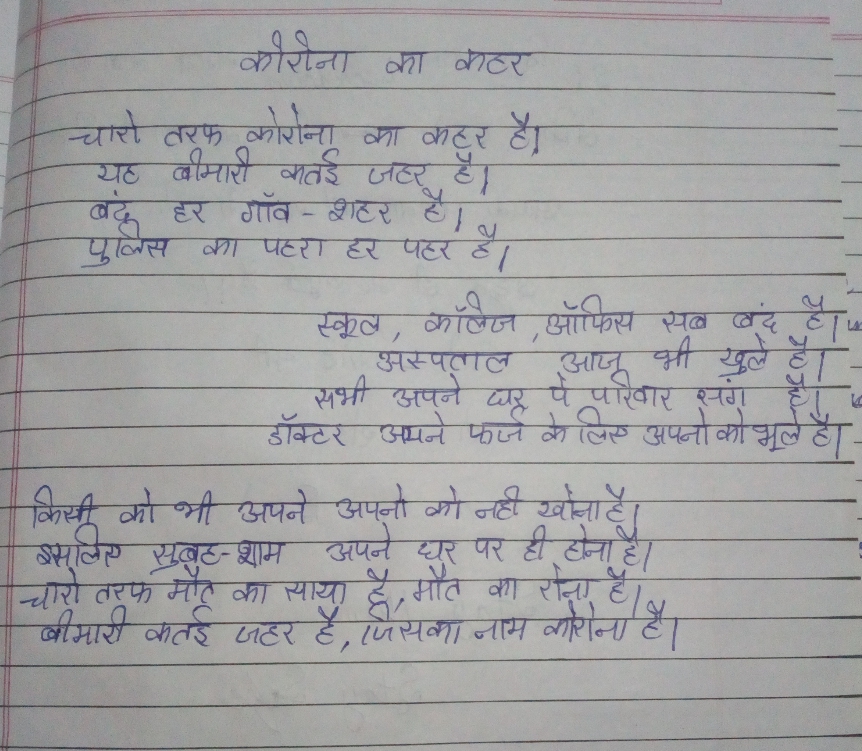 कोरोना का कहर
चारो तरफ कोरोना का कहर है।
यह बीमारी कतई जहर है।
बंद हर गाँव - शहर है।
पुलिस का पहरा हर पहर है।
स्कूल, कॉलेज, ऑफिस सब बंद है।
अस्पताल आज भी खुले है।
सभी अपने घर पे परिवार संग है।
डॉक्टर अपने फर्ज के लिए अपनो को भूले है।
किसी को भी अपने अपनो को नही खोना है।
इसलिए सुबह-शाम अपने घर पर ही होना है।
चारो तरफ मौत का साया है, मौत का रोना है।
बीमारी कतई जहर है, जिसका नाम कोरोना है।